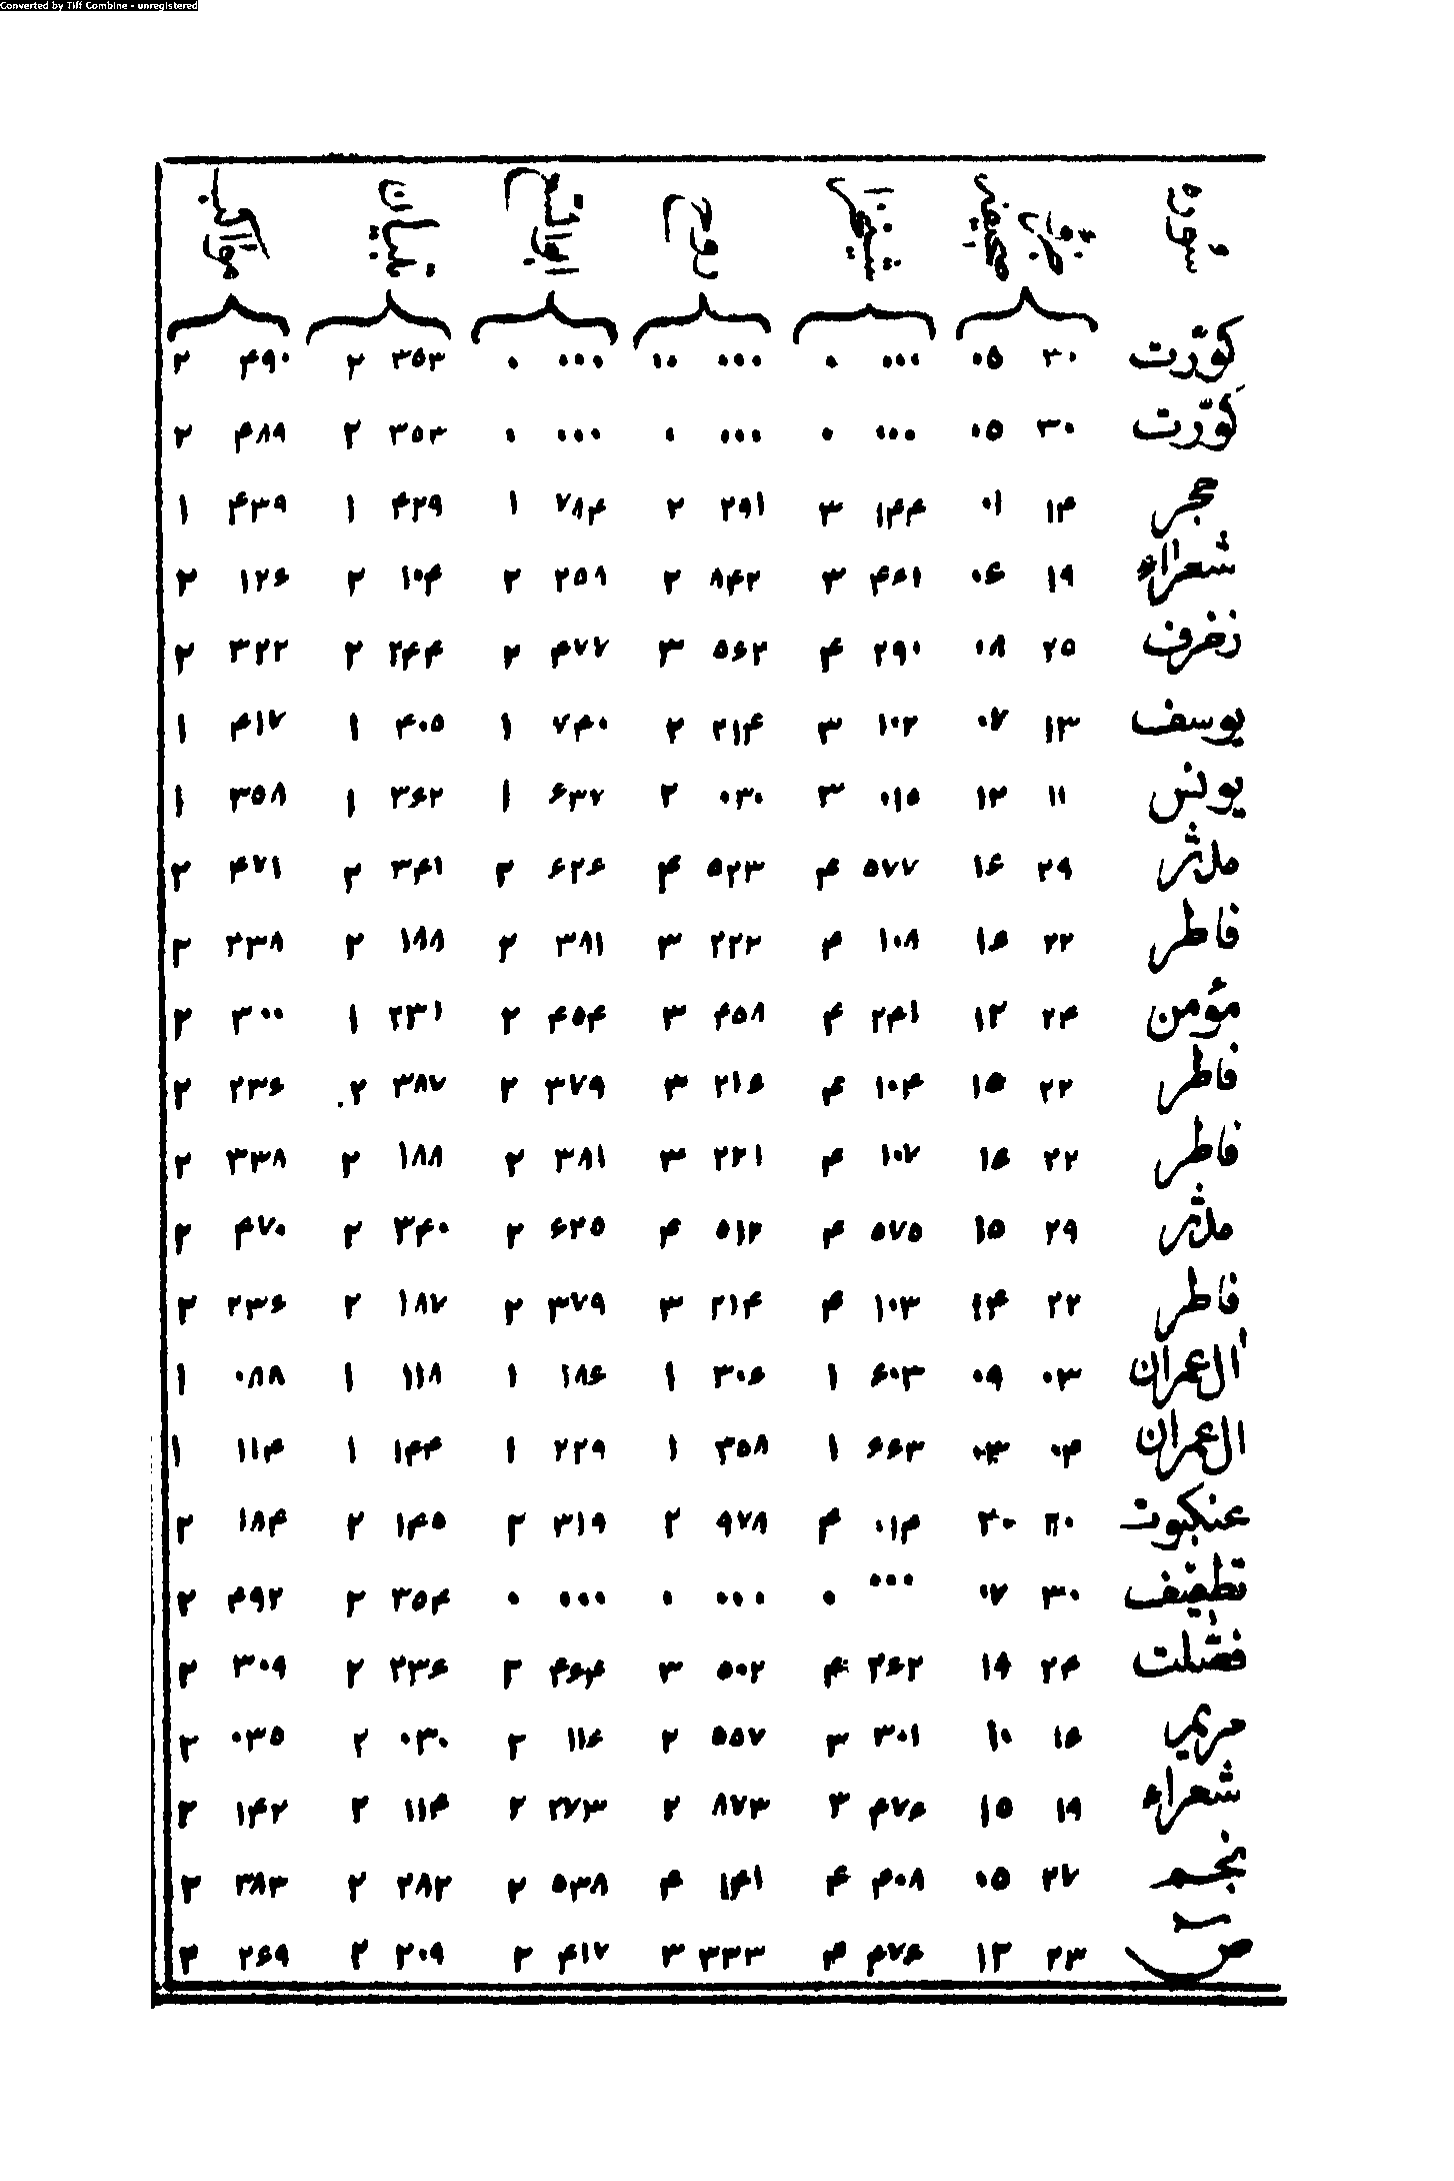 Converted by Tiff Combine - unregistered
سوره جزو صحیفه روح تبیان مواکب
کوّرت ۳۰ ۰۵ ۰۰۰ ۰ ۰۰۰ ۱۰ ۰۰۰ ۰ ۳۵۳ ۲ ۴۹۰ ۲
کوّرت ۳۰ ۰۵ ۰۰۰ ۰ ۰۰۰ ۰ ۰۰۰ ۰ ۳۵۳ ۲ ۴۸۹ ۲
حجر ۱۴ ۰۱ ۱۴۴ ۳ ۲۹۱ ۲ ۷۸۴ ۱ ۴۲۹ ۱ ۴۳۹ ۱
شعراء ۱۹ ۰۶ ۴۶۱ ۳ ۸۴۲ ۲ ۲۵۸ ۲ ۱۰۴ ۲ ۱۲۶ ۲
زخرف ۲۵ ۰۸ ۲۹۰ ۴ ۵۶۲ ۳ ۴۷۷ ۲ ۲۴۴ ۲ ۳۲۲ ۲
یوسف ۱۳ ۰۷ ۱۰۲ ۳ ۲۱۴ ۲ ۷۴۰ ۱ ۴۰۵ ۱ ۴۱۷ ۱
یونس ۱۱ ۱۲ ۰۱۵ ۳ ۰۳۰ ۲ ۶۳۷ ۱ ۳۶۲ ۱ ۳۵۸ ۱
مدثر ۲۹ ۱۶ ۵۷۷ ۴ ۵۲۳ ۴ ۶۲۶ ۲ ۳۴۱ ۲ ۴۷۱ ۲
فاطر ۲۲ ۱۵ ۱۰۸ ۴ ۲۲۲ ۳ ۳۸۱ ۲ ۱۸۸ ۲ ۲۳۸ ۲
مؤمن ۲۴ ۱۲ ۲۴۱ ۴ ۴۵۸ ۳ ۴۵۴ ۲ ۲۳۱ ۱ ۳۰۰ ۲
فاطر ۲۲ ۱۵ ۱۰۴ ۴ ۲۱۶ ۳ ۳۷۹ ۲ ۳۸۷ ۲ ۲۳۶ ۲
فاطر ۲۲ ۱۵ ۱۰۷ ۴ ۲۲۱ ۳ ۳۸۱ ۲ ۱۸۸ ۲ ۲۳۸ ۲
مدثر ۲۹ ۱۵ ۵۷۵ ۴ ۵۱۲ ۴ ۶۲۵ ۲ ۳۴۰ ۲ ۴۷۰ ۲
فاطر ۲۲ ۱۴ ۱۰۳ ۴ ۲۱۴ ۳ ۳۷۹ ۲ ۱۸۷ ۲ ۲۳۶ ۲
ال عمران ۰۳ ۰۹ ۶۰۳ ۱ ۳۰۶ ۱ ۱۸۶ ۱ ۱۱۸ ۱ ۰۸۸ ۱
ال عمران ۰۴ ۰۳ ۶۶۳ ۱ ۳۵۸ ۱ ۲۲۹ ۱ ۱۴۴ ۱ ۱۱۴ ۱
عنکبوت ۲۰ ۰۱۴ ۴ ۹۷۸ ۲ ۳۱۹ ۲ ۱۴۵ ۲ ۱۸۴ ۲
تطفیف ۳۰ ۰۷ ۰۰۰ ۰ ۰۰۰ ۰ ۰۰۰ ۰ ۳۵۴ ۲ ۴۹۲ ۲
فصّلت ۲۴ ۱۹ ۲۶۲ ۴ ۵۰۲ ۳ ۴۶۴ ۲ ۲۳۶ ۲ ۳۰۹ ۲
مریم ۱۶ ۱۰ ۳۰۱ ۳ ۵۵۷ ۲ ۱۱۶ ۲ ۰۳۰ ۲ ۰۳۵ ۲
شعراء ۱۹ ۱۵ ۴۷۶ ۳ ۸۷۳ ۲ ۲۷۳ ۲ ۱۱۴ ۲ ۱۴۲ ۲
نجم ۲۷ ۰۵ ۴۰۸ ۴ ۱۴۱ ۴ ۵۳۸ ۲ ۲۸۲ ۲ ۳۸۳ ۲
ص ۲۳ ۱۳ ۴۷۶ ۴ ۳۳۳ ۳ ۴۱۷ ۲ ۲۰۹ ۲ ۲۶۹ ۲